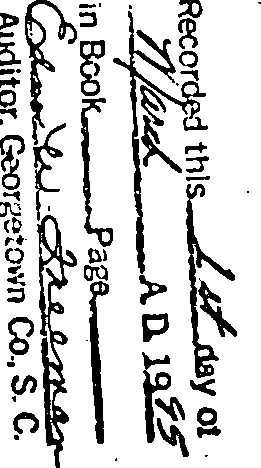 Recorded this 1st day of
March A D 1985
in Book Page
Freeman
Auditor, Georgetown Co., S. C.